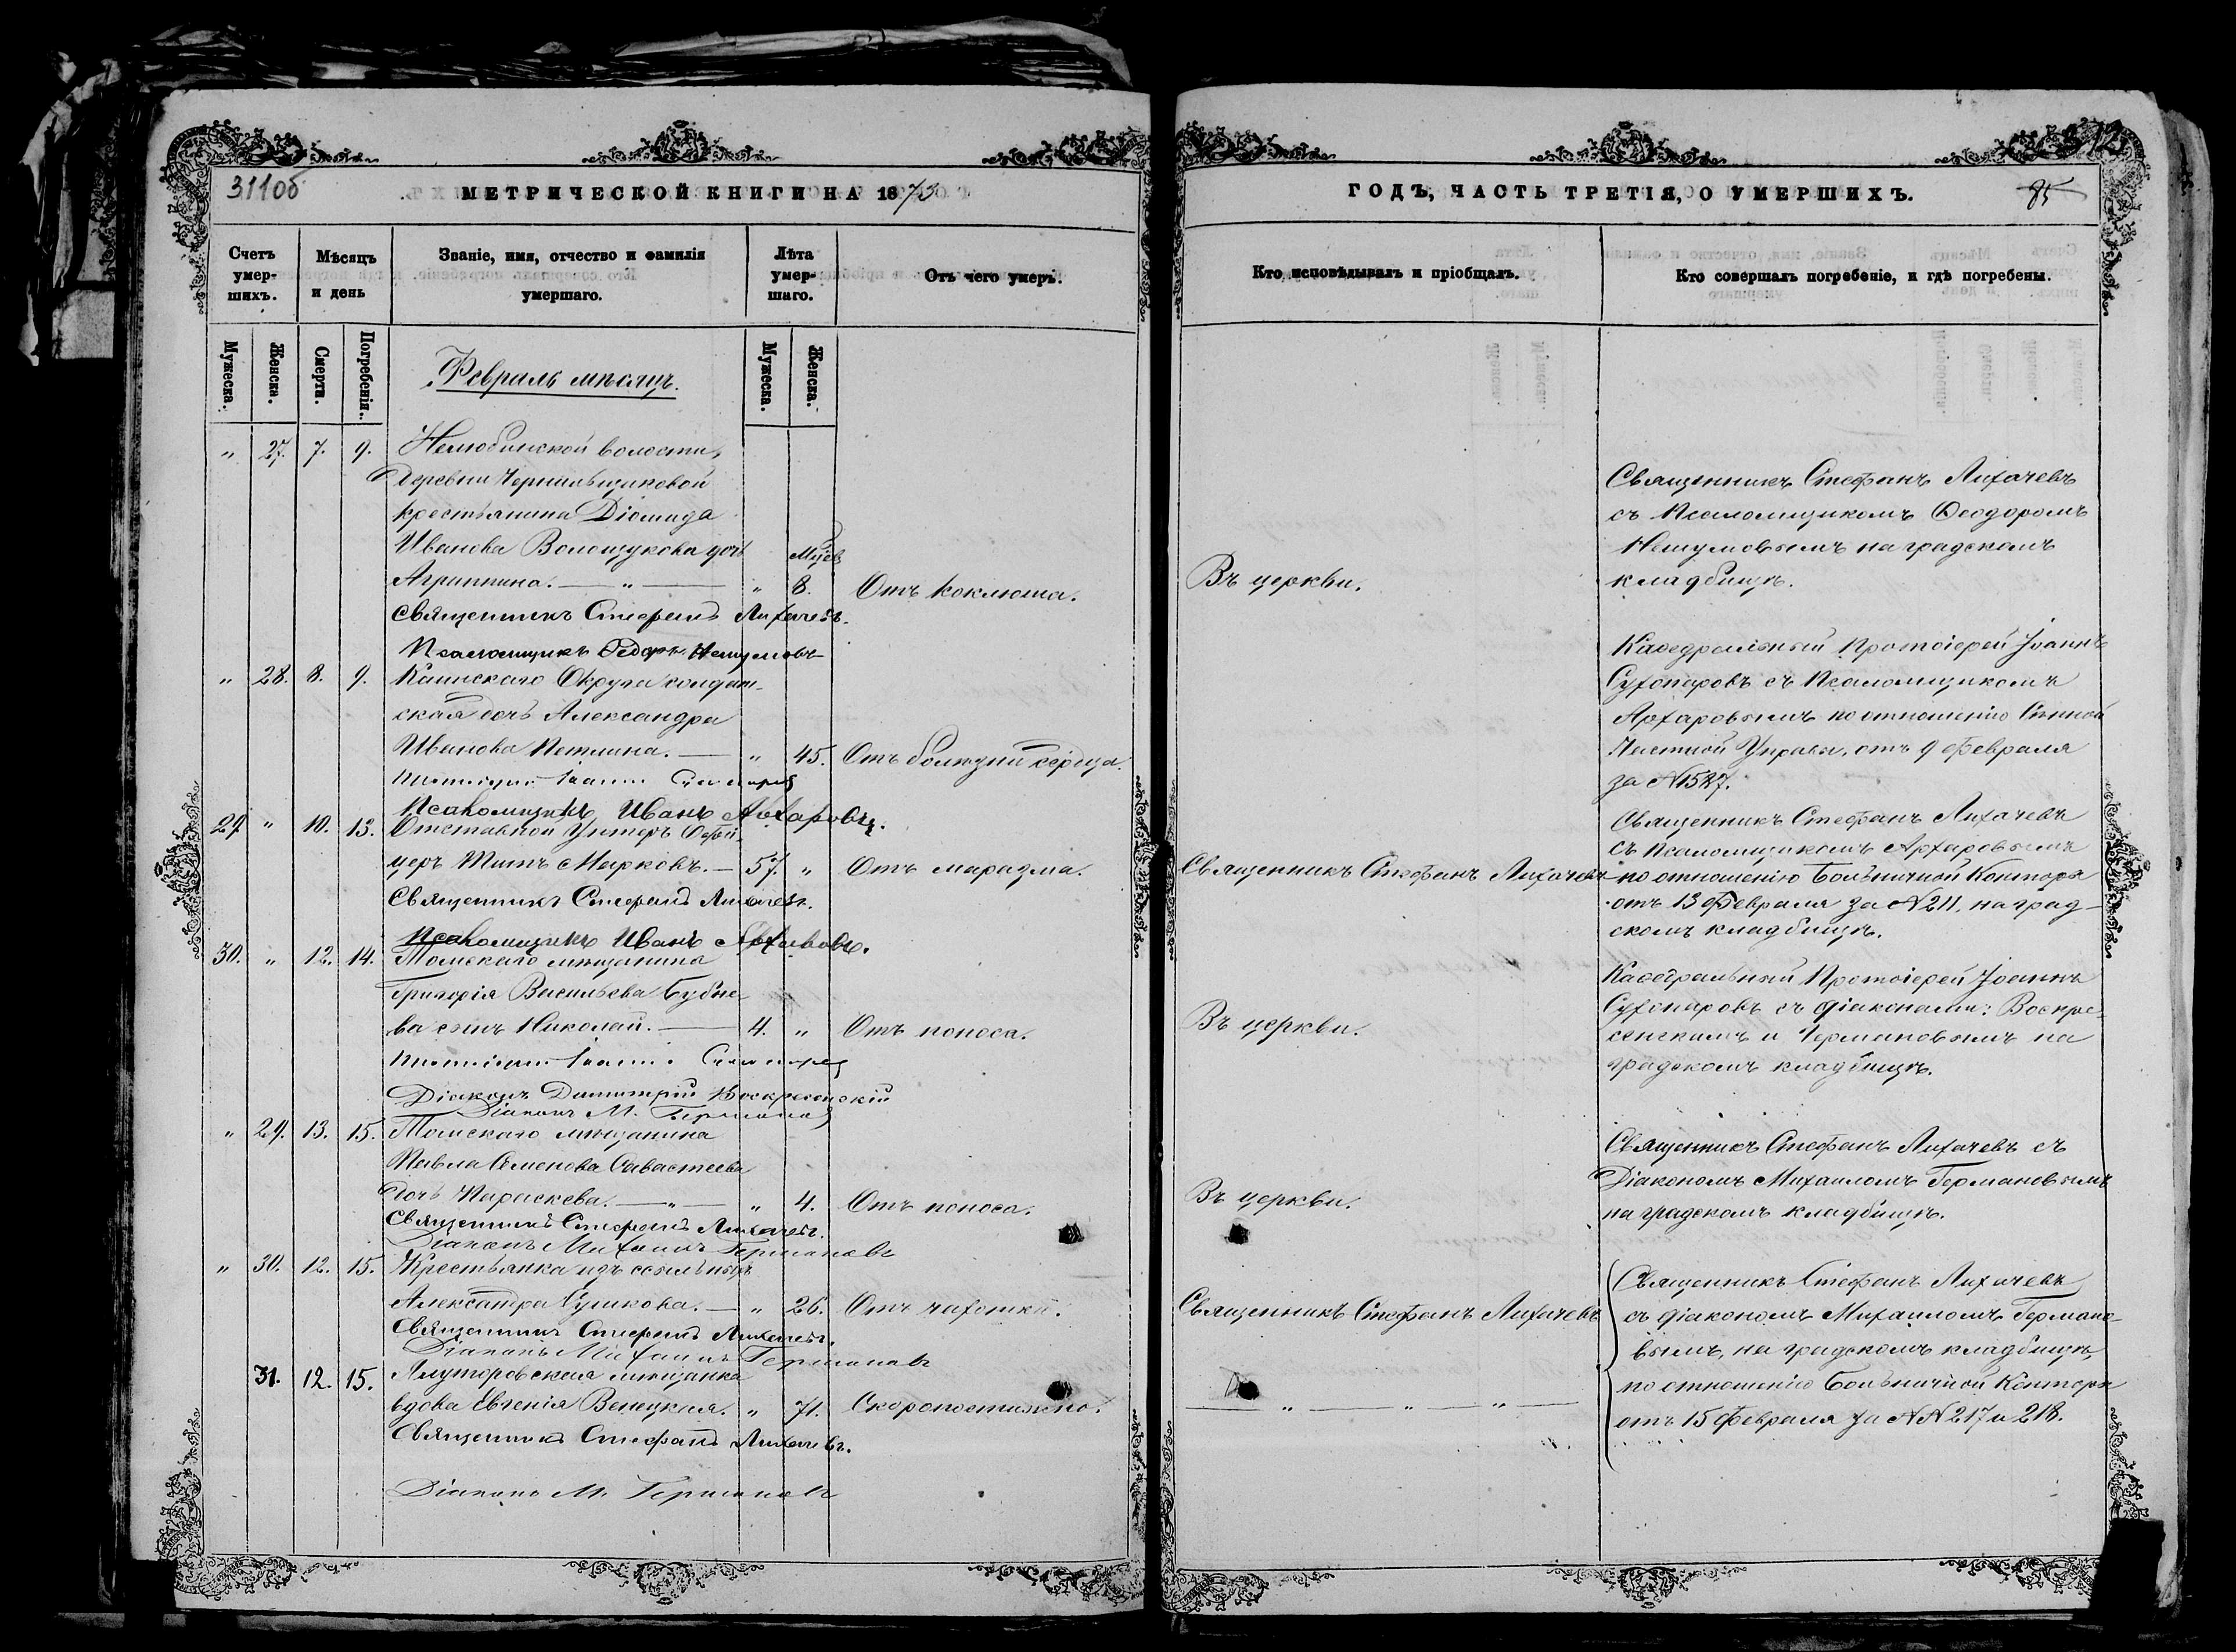 311об
МЕТРИЧЕСКОЙ КНИГИ НА 1873
Счетъ умер- шихъ.
Мѣсяцъ и день
Званіе, имя, отчество и фамилія умершаго.
Лѣта умер- шаго.
Отъ чего умеръ.
Мужеска.
Женска.
Смерти.
Погребенія.
Мужеска.
Женска.
Февраль мѣсяцъ.
" 27. 7. 9. Нелюбинской волости,
деревни Чернильщиковой
крестьянина Діомида
Иванова Волощукова дочь Мцев
Агриппина. — " — " 8. Отъ коклюша.
Священникъ Стефанъ Лихачевъ.
Псаломщикъ Ѳедоръ Нешумовъ
" 28. 8. 9. Каинскаго Округа солдат-
ская дочь Александра
Иванова Петлина. — " 45. Отъ болѣзни сердца.
Протоіерей Іоаннъ Сухопаровъ
Псаломщикъ Иванъ Архаровъ.
29. " 10. 13. Отставной Унтеръ Офи-
церъ Титъ Марковъ. — 57. " Отъ маразма.
Священникъ Стефанъ Лихачевъ.
Псаломщикъ Иванъ Архаровъ.
30. " 12. 14. Томскаго мѣщанина
Григорія Васильева Бубне-
ва сынъ Николай. — 4. " Отъ поноса.
Протоіерей Іоаннъ Сухопаровъ
Діаконъ Димитрій Воскресенскій
Діаконъ М. Германовъ
" 29. 13. 15. Томскаго мѣщанина
Павла Семенова Савастеева
дочь Параскева. — " — " 4. Отъ поноса.
Священникъ Стефанъ Лихачевъ.
Діаконъ Михаилъ Германовъ
" 30. 12. 15. Крестьянка изъ ссыльныхъ
Александра Сушкова. — " 26. Отъ чахотки.
Священникъ Стефанъ Лихачевъ.
Діаконъ Михаилъ Германовъ
31. 12. 15. Ялуторовская мѣщанка
вдова Евгенія Венецкая. " 71. Скоропостижно.
Священникъ Стефанъ Лихачевъ.
Діаконъ М. Германовъ
12
ГОДЪ, ЧАСТЬ ТРЕТІЯ, О УМЕРШИХЪ.
85
Кто исповѣдывалъ и пріобщалъ.
Кто совершалъ погребеніе, и гдѣ погребены.
Священникъ Стефанъ Лихачевъ
съ Псаломщикомъ Ѳеодоромъ
Нешумовымъ на градскомъ
Въ церкви. кладбищѣ.
Каѳедральный Протоіерей Іоаннъ
Сухопаровъ съ Псаломщикомъ
Архаровымъ по отношенію Сѣнной
Частной Управы, отъ 9 Февраля
за №1527.
Священникъ Стефанъ Лихачевъ
съ Псаломщикомъ Архаровымъ
Священникъ Стефанъ Лихачевъ по отношенію Больничной Конторы
отъ 13 Февраля за №211, на град-
скомъ кладбищѣ.
Каѳедральный Протоіерей Іоаннъ
Сухопаровъ съ діаконами: Воскре-
Въ церкви. сенскимъ и Германовымъ на
градскомъ кладбищѣ.
Священникъ Стефанъ Лихачевъ съ
Діакономъ Михаиломъ Германовымъ
Въ церкви. на градскомъ кладбищѣ.
Священникъ Стефанъ Лихачевъ
Священникъ Стефанъ Лихачевъ съ діакономъ Михаиломъ Германо-
вымъ, на градскомъ кладбищѣ,
по отношенію Больничной Конторы
— " — " — " — отъ 15 Февраля за №№217 и 218.